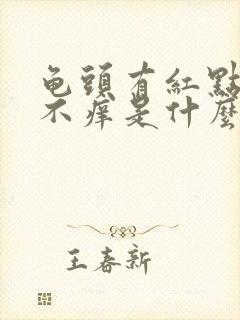 龟頭有紅點
不癢是什麽
王春新